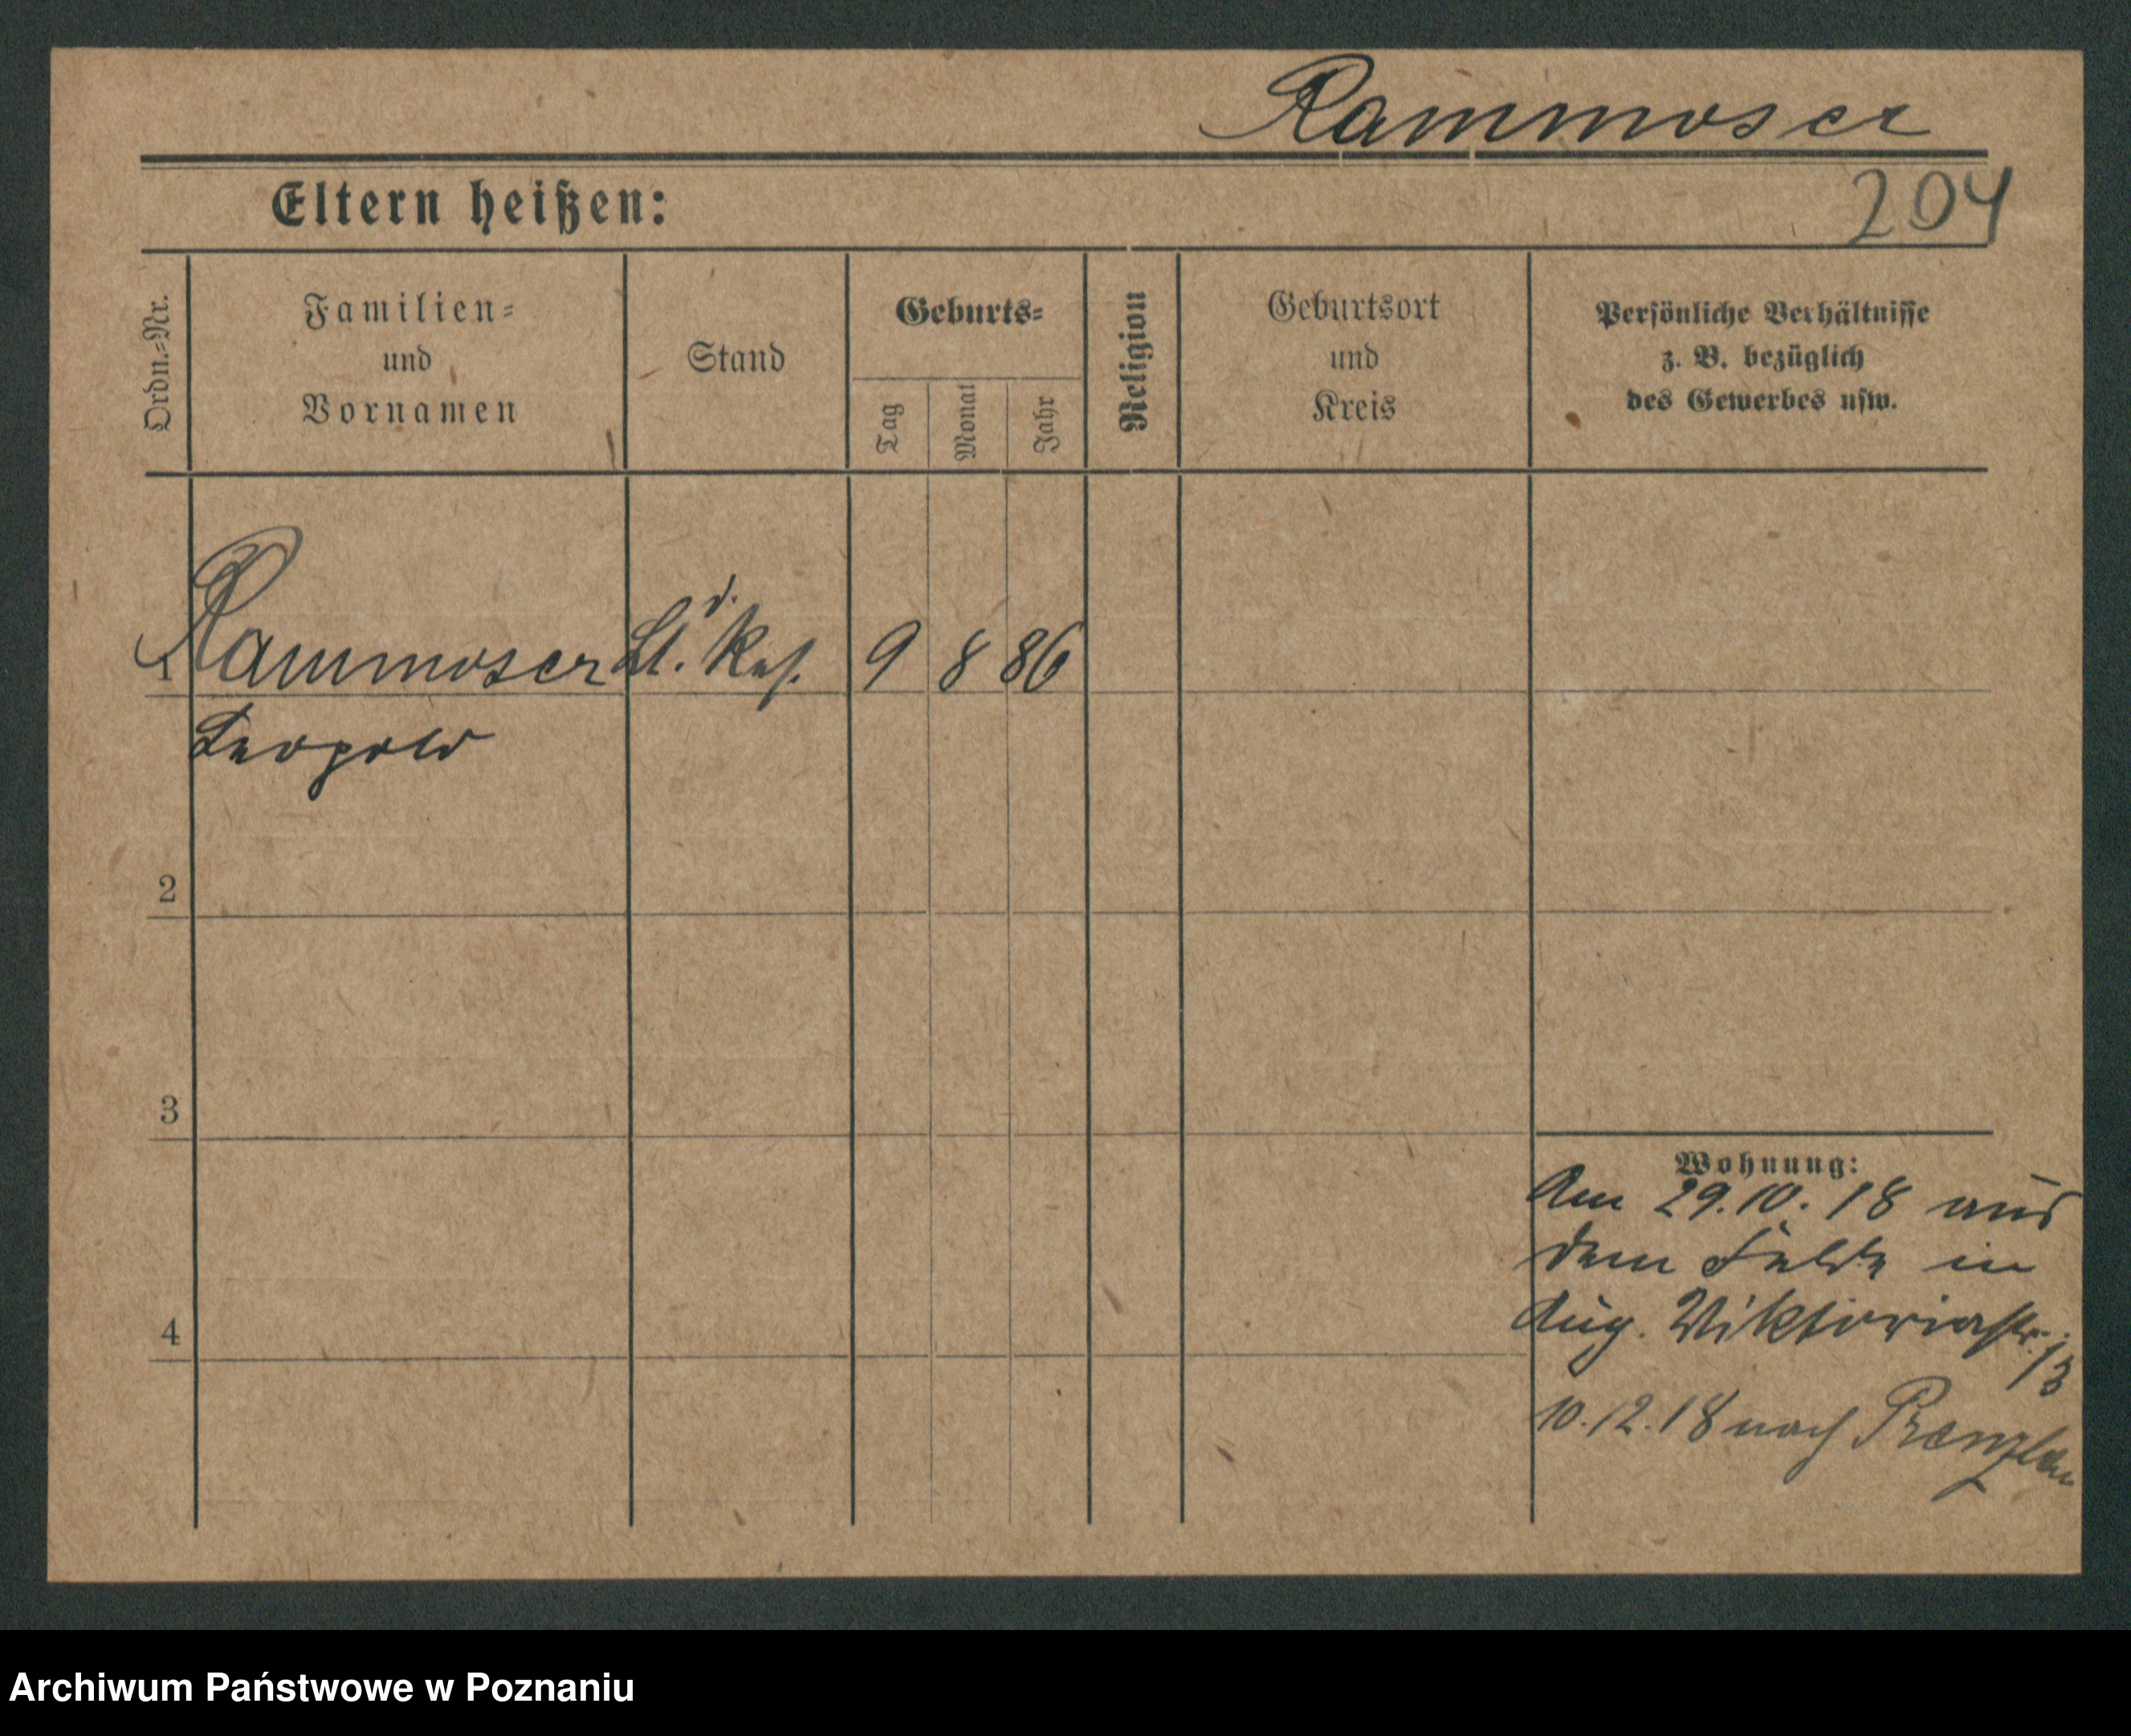 Rammoser
Eltern heißen:
204
Ordn.=Nr.
Familien=
und
Vornamen
Stand
Geburts=
Tag
Monat
Jahr
Religion
Geburtsort
und
Kreis
Persönliche Verhältnisse
z. B. bezüglich
des Gewerbes usw.
1 Rammoser Lt. d. Res. 9 8 86
Leopold
2
3
4
Wohnung:
Am 29.10.18 aus
dem Felde in
Aug. Viktoriastr. 13
10.12.18 nach Prenzlau
Archiwum Państwowe w Poznaniu